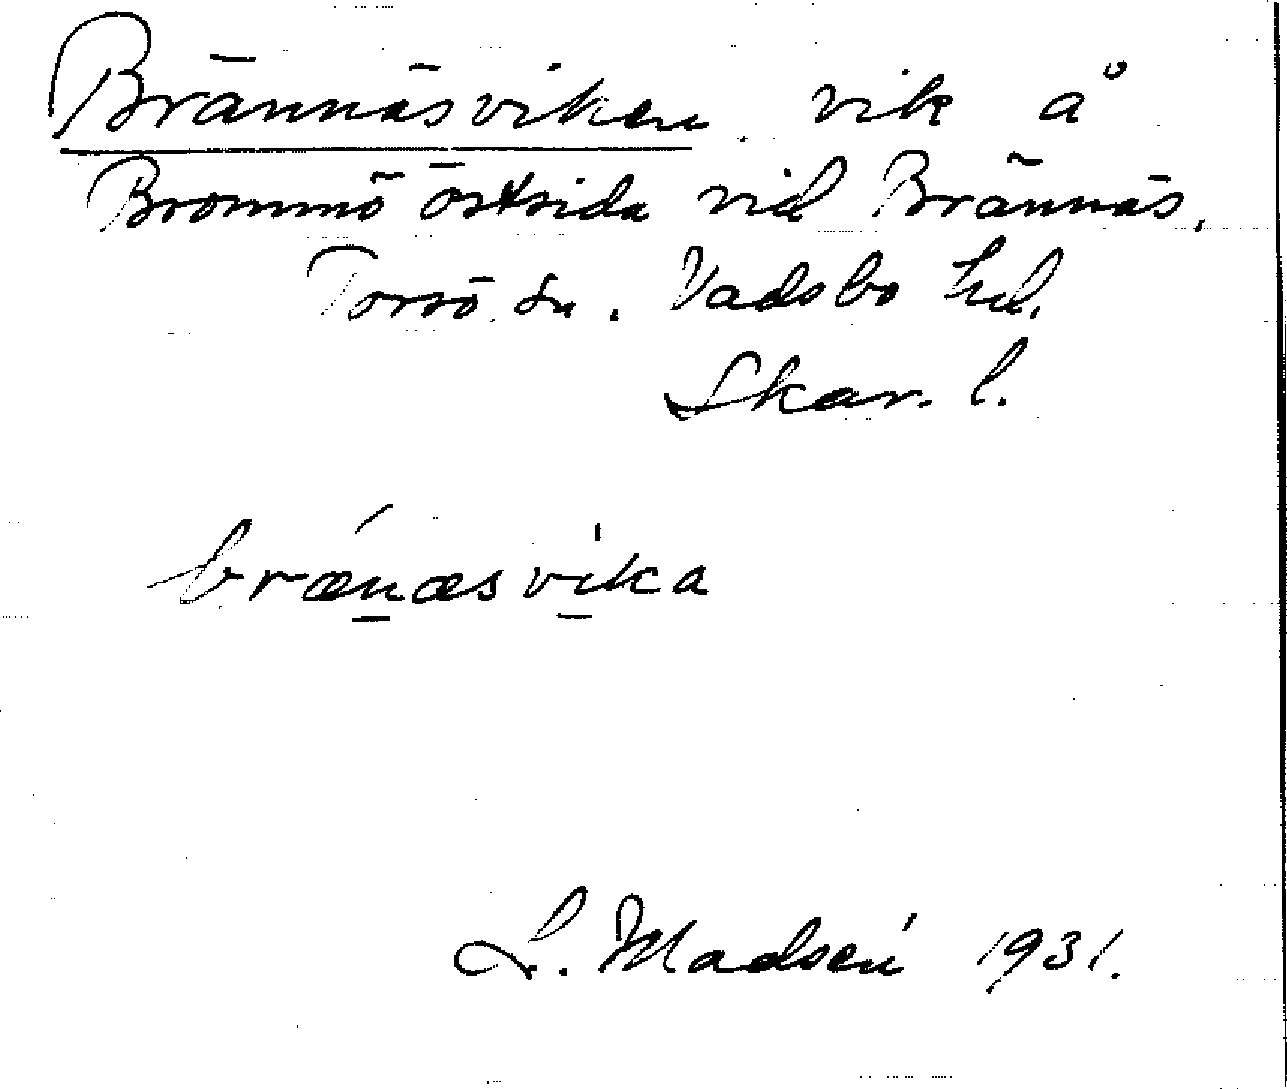 Brännäsviken vik å
Brommö östsida vid Brännäs.
Torsö sn. Vadsbo hd.
Skar. l.
brænæsvika
L. Madsén 1931.